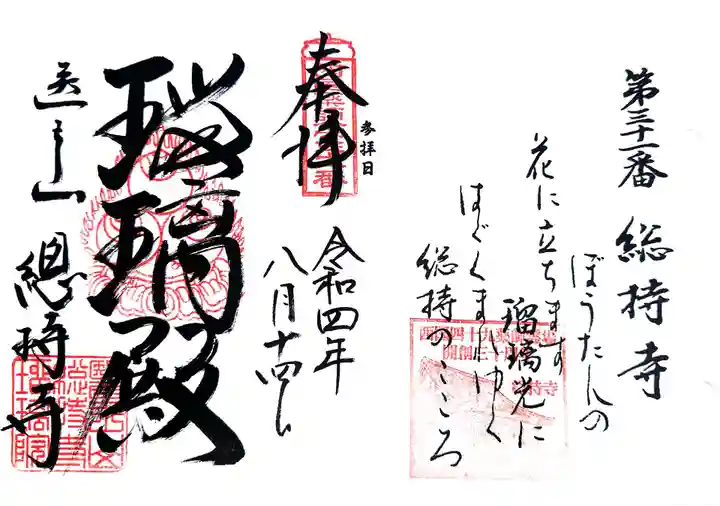 第三十一番 総持寺
ぼうたんの
花に立ちます
瑠璃光に
はぐくまれゆく
総持のこころ
奉拝
参拝日
令和四年
八月十四日
瑠璃殿
総持寺